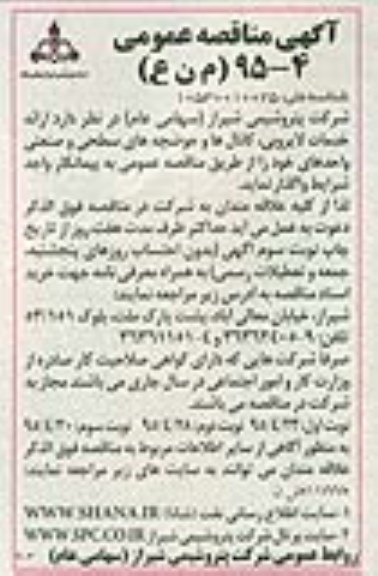 آگهی مناقصه عمومی
۴–۹۵ (م ن ع)
شرکت پتروشیمی شیراز (سهامی عام) در نظر دارد ارائه
خدمات لایروبی، کانال ها و حوضچه های سطحی و صنعتی
واحدهای خود را از طریق مناقصه عمومی به پیمانکار واجد
شرایط واگذار نماید.
لذا از کلیه علاقه مندان به شرکت در مناقصه فوق الذکر
دعوت به عمل می آید حداکثر ظرف مدت هفت روز از تاریخ
چاپ نوبت سوم آگهی (بدون احتساب روزهای پنجشنبه،
جمعه و تعطیلات رسمی) به همراه معرفی نامه جهت خرید
اسناد مناقصه به آدرس زیر مراجعه نمایند:
شیراز، خیابان معالی آباد، پشت پارک ملت، بلوک
تلفن:
صرفا شرکت هایی که دارای گواهی صلاحیت کار صادره از
وزارت کار و امور اجتماعی در سال جاری می باشند مجاز به
شرکت در مناقصه می باشند.
نوبت اول: نوبت دوم: نوبت سوم:
به منظور آگاهی از سایر اطلاعات مربوط به مناقصه فوق الذکر
علاقه مندان می توانند به سایت های زیر مراجعه نمایند:
۱-سایت اطلاع رسانی نفت (شانا) WWW.SHANA.IR
۲-سایت پرتال شرکت پتروشیمی شیراز WWW.SPC.CO.IR
روابط عمومی شرکت پتروشیمی شیراز (سهامی عام)